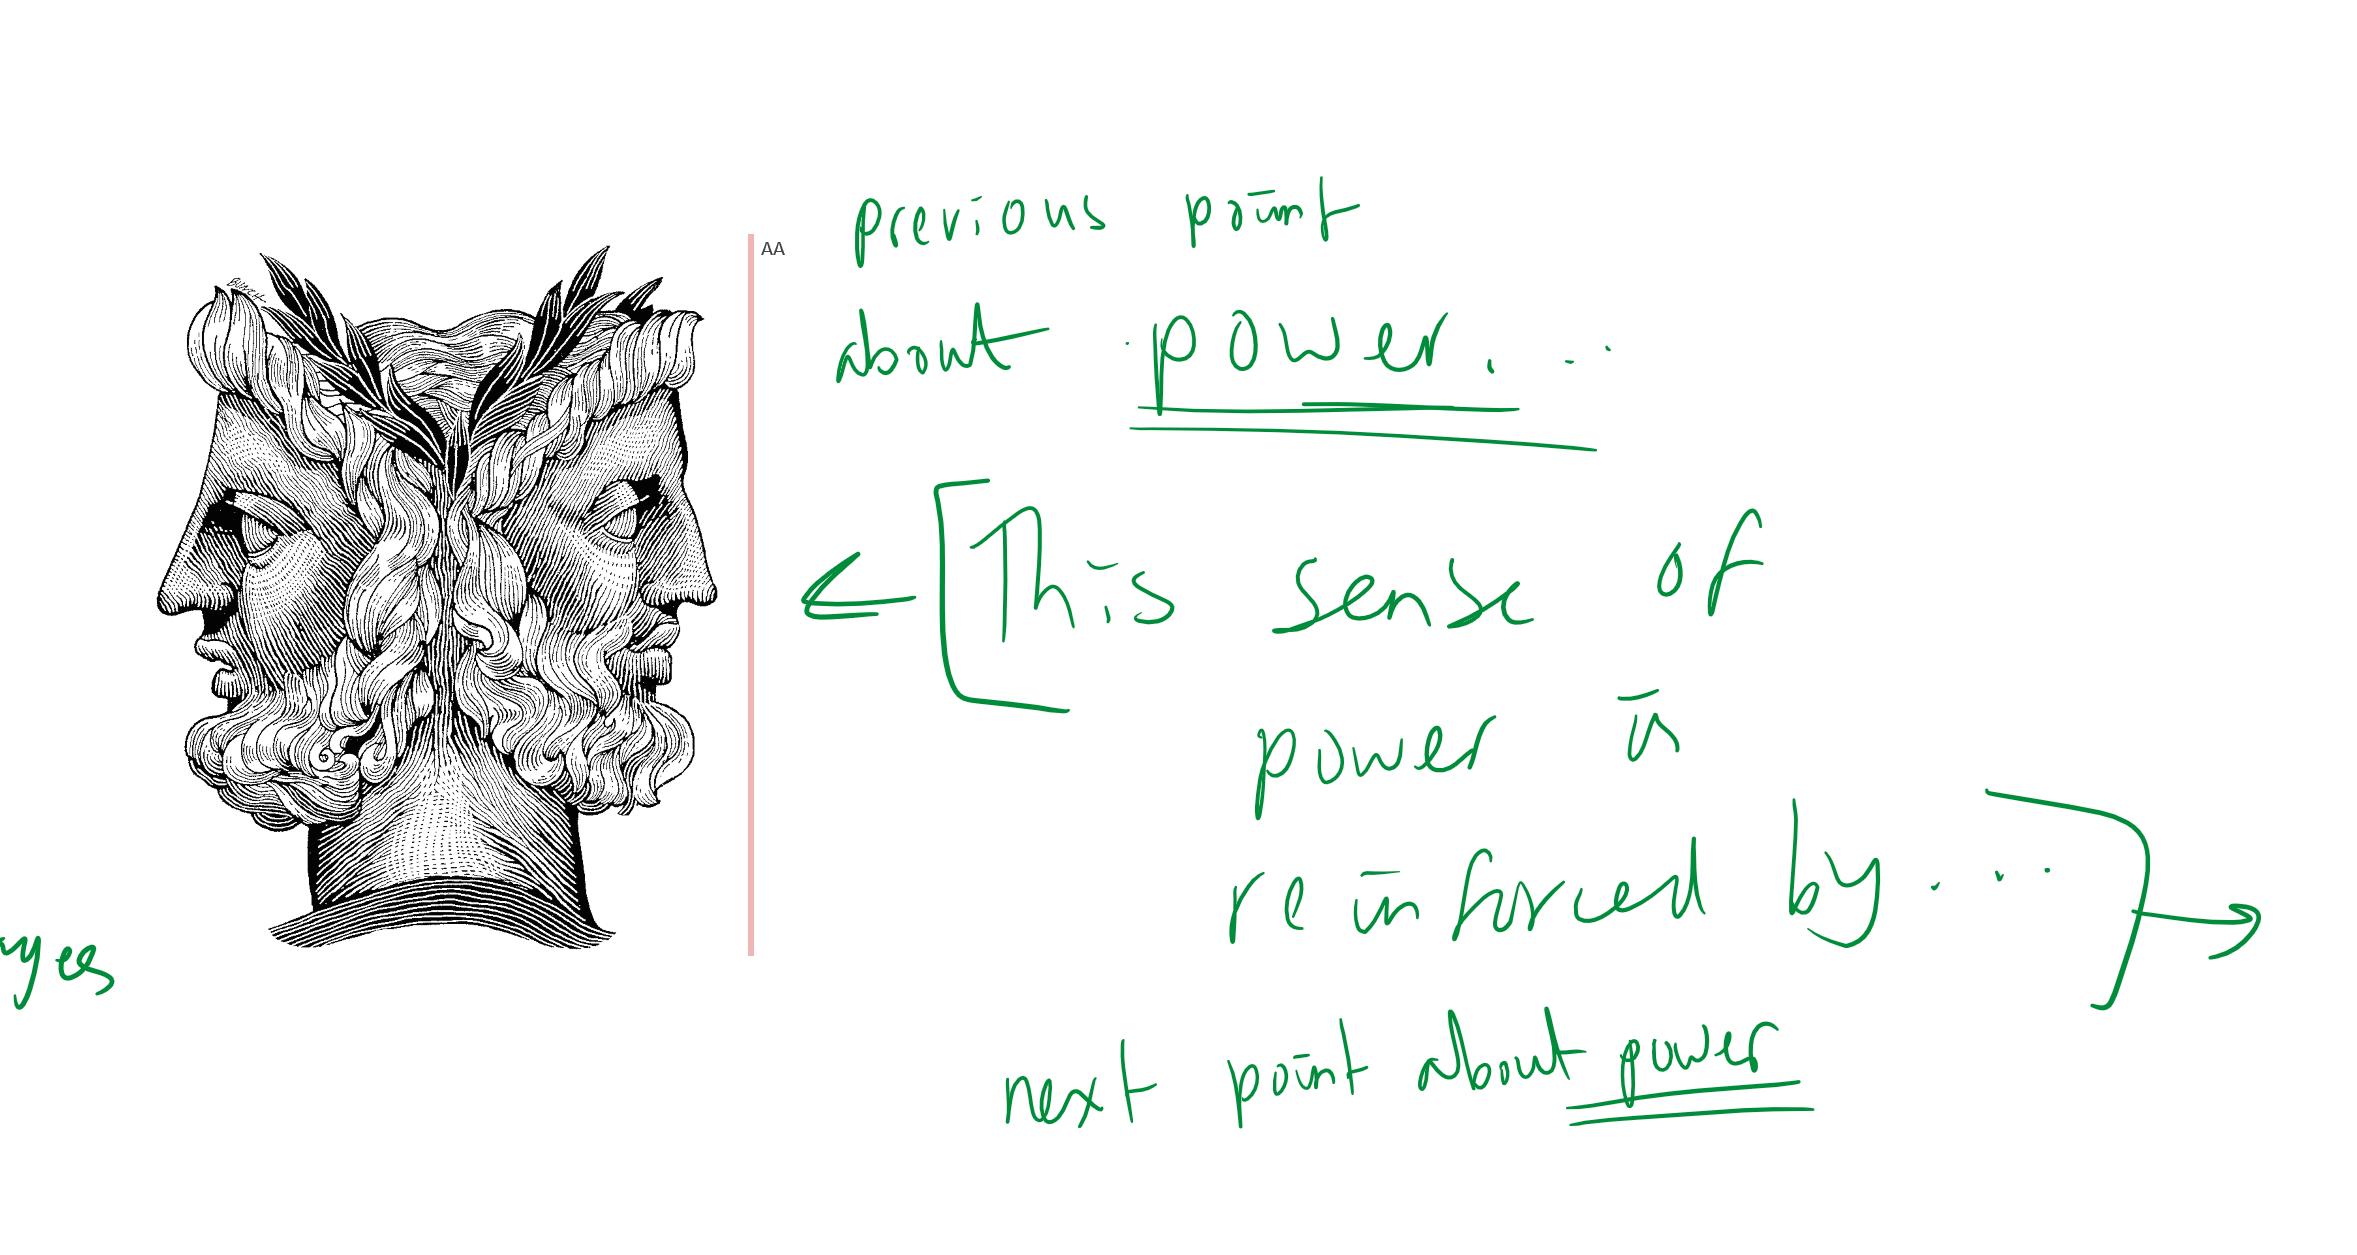 previous point
AA
about power...
[This sense of
power is
reinforced by....]
next point about power